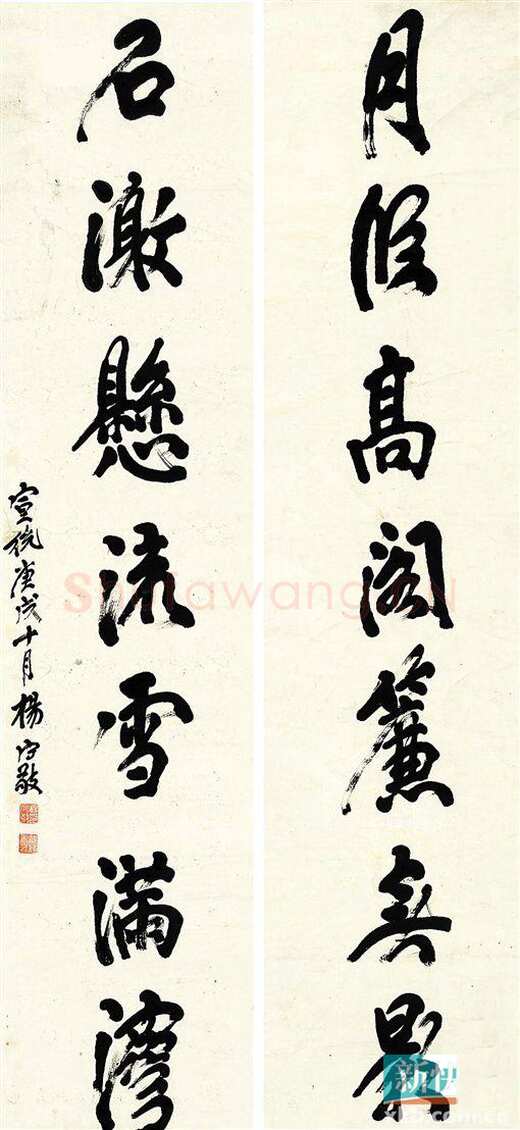 月侵高閣簾無
石激懸流雪滿灣
宣統庚戌十月楊守敬
Shufawang.CN
新快